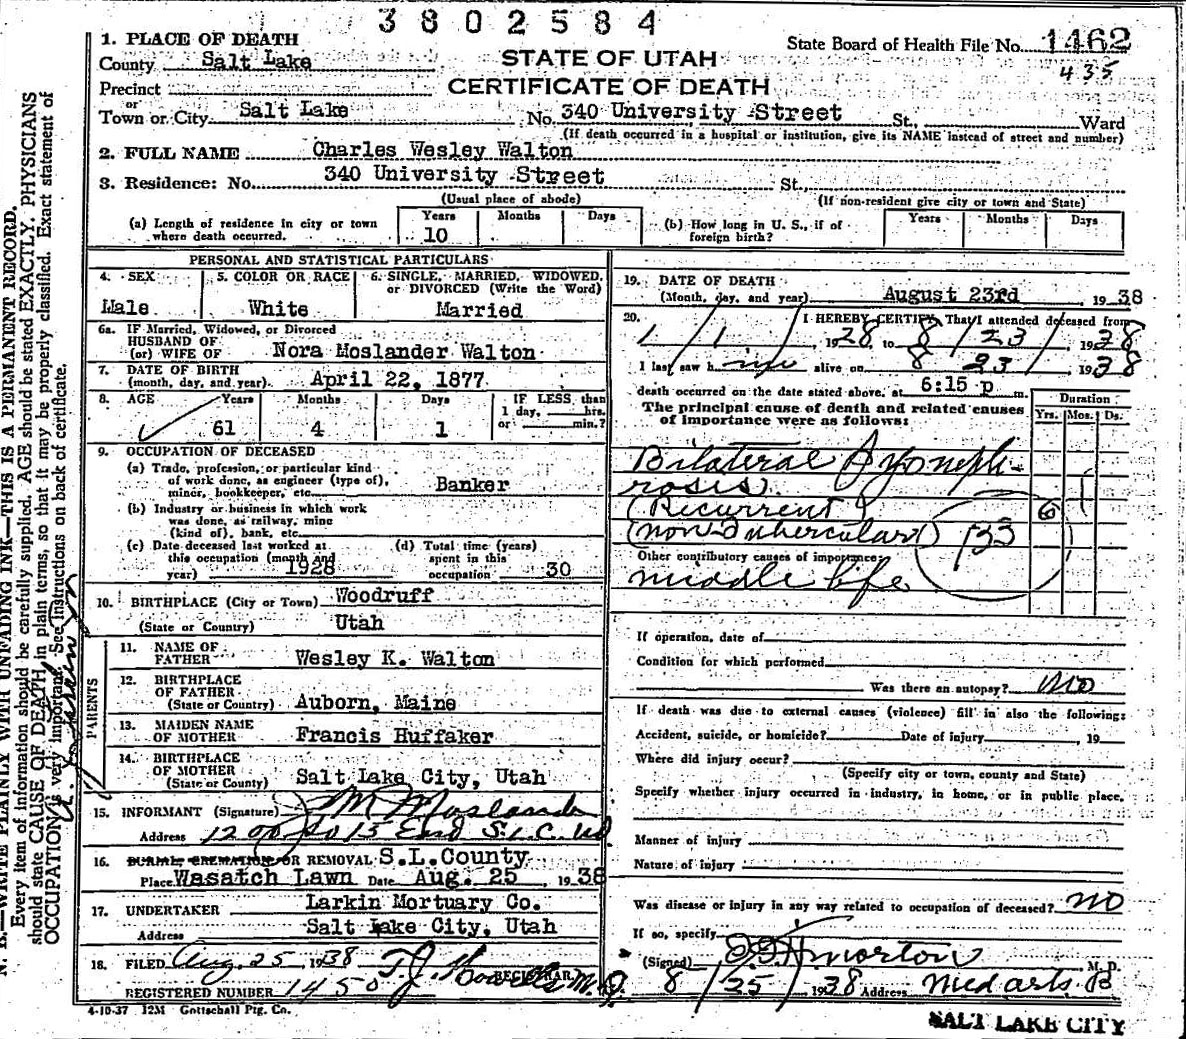 3802584
1. PLACE OF DEATH
County Salt Lake
Precinct
or
Town or City Salt Lake
STATE OF UTAH
CERTIFICATE OF DEATH
State Board of Health File No. 1462
435
No. 340 University Street St., Ward
(If death occurred in a hospital or institution, give its NAME instead of street and number)
2. FULL NAME Charles Wesley Walton
3. Residence: No. 340 University Street St.
(Usual place of abode) (If non-resident give city or town and State)
(a) Length of residence in city or town where death occurred. Years 10 Months Days
(b) How long in U. S., if of foreign birth? Years Months Days
PERSONAL AND STATISTICAL PARTICULARS
4. SEX 5. COLOR OR RACE 6. SINGLE, MARRIED, WIDOWED,
or DIVORCED (Write the Word)
Male White Married
6a. IF Married, Widowed, or Divorced
HUSBAND OF
(or) WIFE OF Nora Moslander Walton
7. DATE OF BIRTH
(month, day, and year). April 22, 1877
8. AGE Years Months Days IF LESS than
1 day, hrs.
or min.?
61 4 1
9. OCCUPATION OF DECEASED
(a) Trade, profession, or particular kind
of work done, as engineer (type of),
miner, bookkeeper, etc. Banker
(b) Industry or business in which work
was done, as railway, mine
(kind of), bank, etc.
(c) Date deceased last worked at
this occupation (month and
year) 1928
(d) Total time (years)
spent in this
occupation 30
10. BIRTHPLACE (City or Town) Woodruff
(State or Country) Utah
PARENTS
11. NAME OF
FATHER Wesley K. Walton
12. BIRTHPLACE
OF FATHER
(State or Country) Auborn, Maine
13. MAIDEN NAME
OF MOTHER Francis Huffaker
14. BIRTHPLACE
OF MOTHER
(State or County) Salt Lake City, Utah
15. INFORMANT (Signature) J M Moslander
Address 1200 So 15 East S.L.C. Ut
16. BURIAL CREMATION OR REMOVAL S.L.County
Place Wasatch Lawn Date Aug. 25, 1938
17. UNDERTAKER Larkin Mortuary Co.
Address Salt Lake City, Utah
18. FILED Aug. 25, 1938 T.J. Howells M.D.
REGISTRAR
REGISTERED NUMBER 1450
4-10-37 12M Gottschall Ptg. Co.
19. DATE OF DEATH
(Month, day, and year) August 23rd, 1938
20. I HEREBY CERTIFY, That I attended deceased from
1/1/, 1928, to 8/23/, 1938
I last saw him alive on 8 23/ 1938
death occurred on the date stated above, at 6:15 p m.
The principal cause of death and related causes
of importance were as follows:
Duration
Yrs. Mos. Ds.
Bilateral Pyoneph-
rosis
(Recurrent)
(non-Tubercular) 133
6
Other contributory causes of importance:
middle life
If operation, date of
Condition for which performed
Was there an autopsy? no
If death was due to external causes (violence) fill in also the following:
Accident, suicide, or homicide? Date of injury , 19
Where did injury occur?
(Specify city or town, county and State)
Specify whether injury occurred in industry, in home, or in public place.
Manner of injury
Nature of injury
Was disease or injury in any way related to occupation of deceased? no
If so, specify
(Signed) Morton M. D.
8/25/ 1938 Address Med arts B
SALT LAKE CITY
N. B.—WRITE PLAINLY WITH UNFADING INK—THIS IS A PERMANENT RECORD.
Every item of information should be carefully supplied. AGE should be stated EXACTLY. PHYSICIANS
should state CAUSE OF DEATH in plain terms, so that it may be properly classified. Exact statement of
OCCUPATION is very important. See instructions on back of certificate.